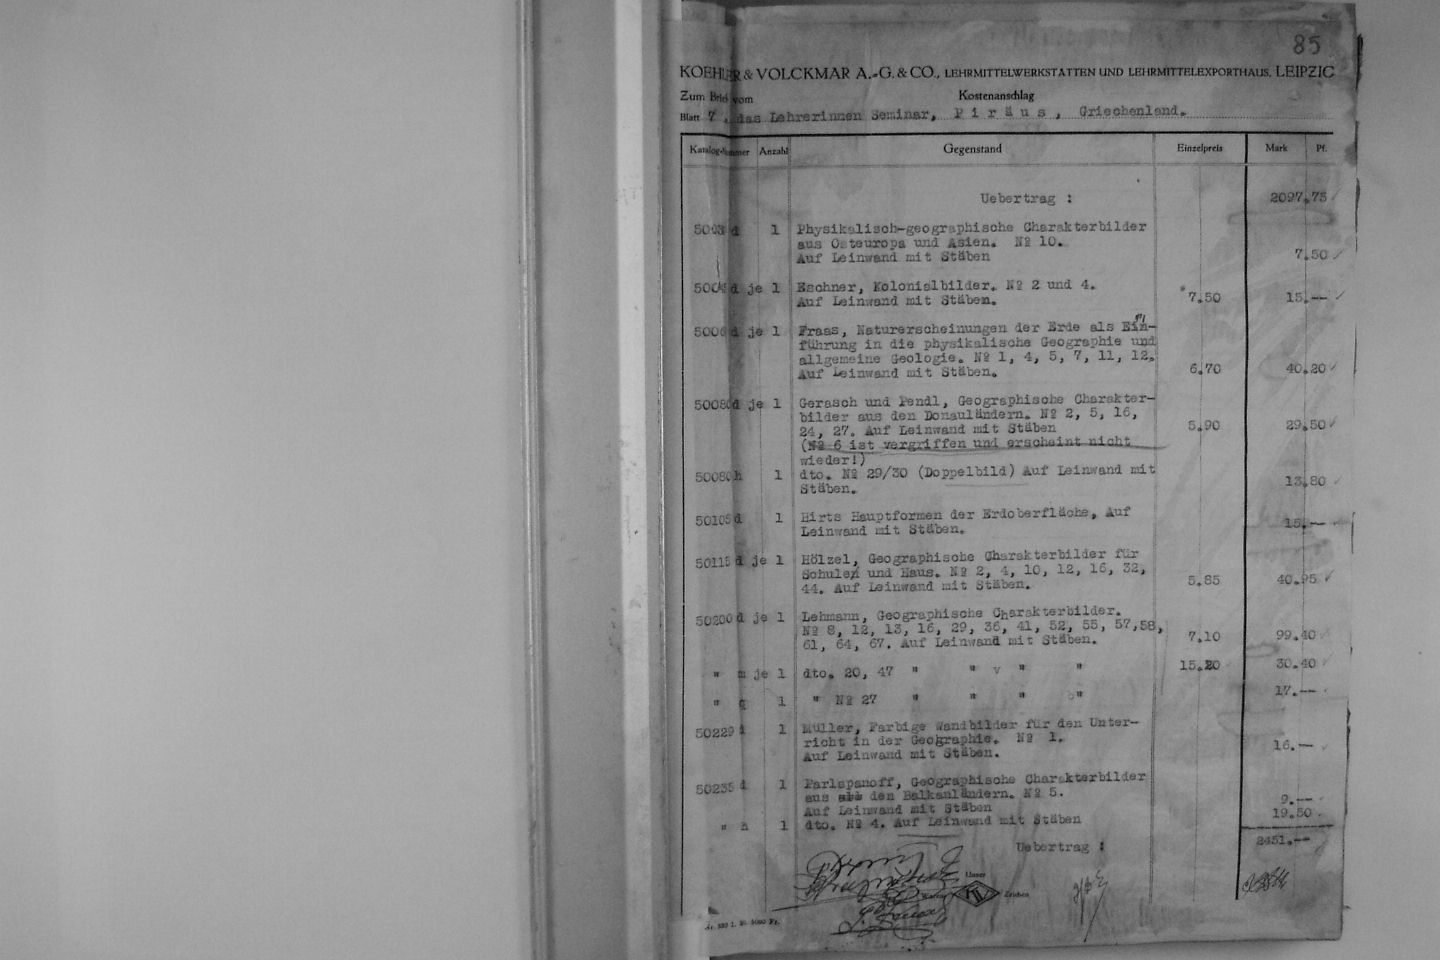 85
KOEHLER & VOLCKMAR A.-G. & CO., LEHRMITTELWERKSTÄTTEN UND LEHRMITTELEXPORTHAUS, LEIPZIG
Zum Brief vom Kostenanschlag
Blatt 7, das Lehrerinnen Seminar, Piräus, Griechenland.
Katalog-Nummer Anzahl Gegenstand Einzelpreis Mark Pf.
Uebertrag : 2097.75
d 1 Physikalisch-geographische Charakterbilder
aus Osteuropa und Asien. № 10.
Auf Leinwand mit Stäben 7.50
d je 1 Eschner, Kolonialbilder. № 2 und 4.
Auf Leinwand mit Stäben. 7.50 15.--
d je 1 Fraas, Naturerscheinungen der Erde als Ein-
führung in die physikalische Geographie und
allgemeine Geologie. № 1, 4, 5, 7, 11, 12.
Auf Leinwand mit Stäben. 6.70 40.20
50080 d je 1 Gerasch und Pendl, Geographische Charakter-
bilder aus den Donauländern. № 2, 5, 16,
24, 27. Auf Leinwand mit Stäben 5.90 29.50
(№ 6 ist vergriffen und erscheint nicht
wieder!)
50080 h 1 dto. № 29/30 (Doppelbild) Auf Leinwand mit
Stäben. 13.80
50105 d 1 Hirts Hauptformen der Erdoberfläche, Auf
Leinwand mit Stäben. 15.--
50115 d je 1 Hölzel, Geographische Charakterbilder für
Schulen und Haus. № 2, 4, 10, 12, 16, 32,
44. Auf Leinwand mit Stäben. 5.85 40.95
50200 d je 1 Lehmann, Geographische Charakterbilder.
№ 8, 12, 13, 16, 29, 36, 41, 52, 55, 57,58,
61, 64, 67. Auf Leinwand mit Stäben. 7.10 99.40
" m je 1 dto. 20, 47 " " " " 15.20 30.40
" q 1 " № 27 " " " " 17.--
50229 d 1 Müller, Farbige Wandbilder für den Unter-
richt in der Geographie. № 1.
Auf Leinwand mit Stäben. 16.--
50235 d 1 Parlapanoff, Geographische Charakterbilder
aus den Balkanländern. № 5.
Auf Leinwand mit Stäben 9.--
" h 1 dto. № 4. Auf Leinwand mit Stäben 19.50
Uebertrag : 2451.--
Unser
Zeichen